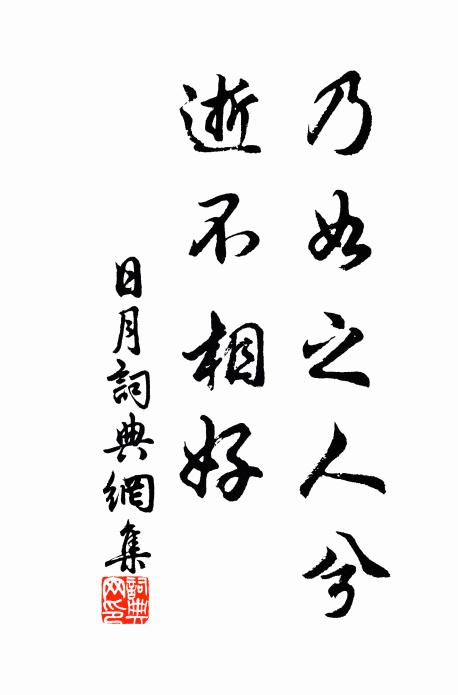 乃如之人兮
逝不相好
日月詞典網集
詞典
网印